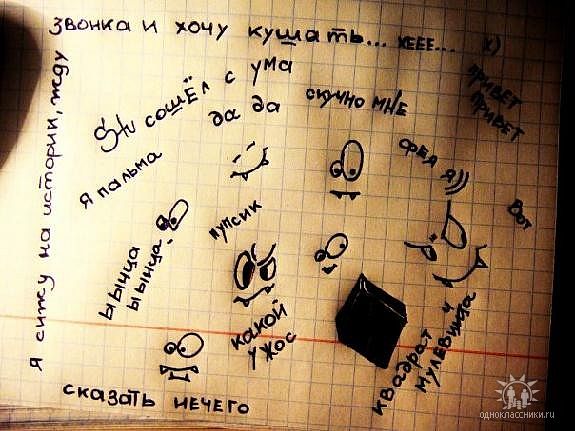 Я ситжу на истории, жду
звонка и хочу кушать... хеее... х)
Shu сошёл с ума
да да
скучно мне
привет
привет
я пальма
фея я)))
Вот
пупсик
ыынца
ыынца
какой
ужос
квадрат
мулевича
сказать нечего
одноклассники.ru